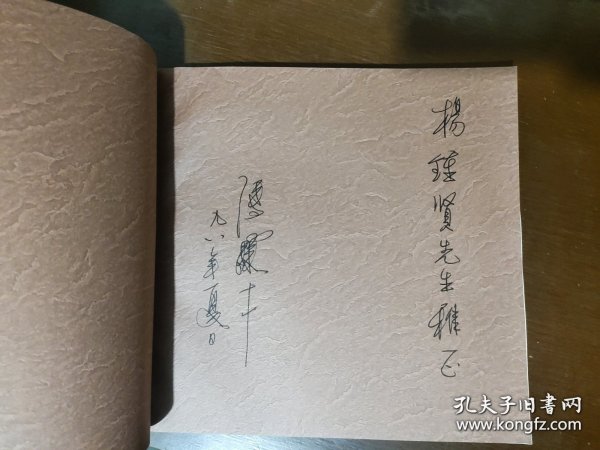 楊鍾賢先生雅正
九八年夏日
孔夫子旧书网
www.kongfz.com